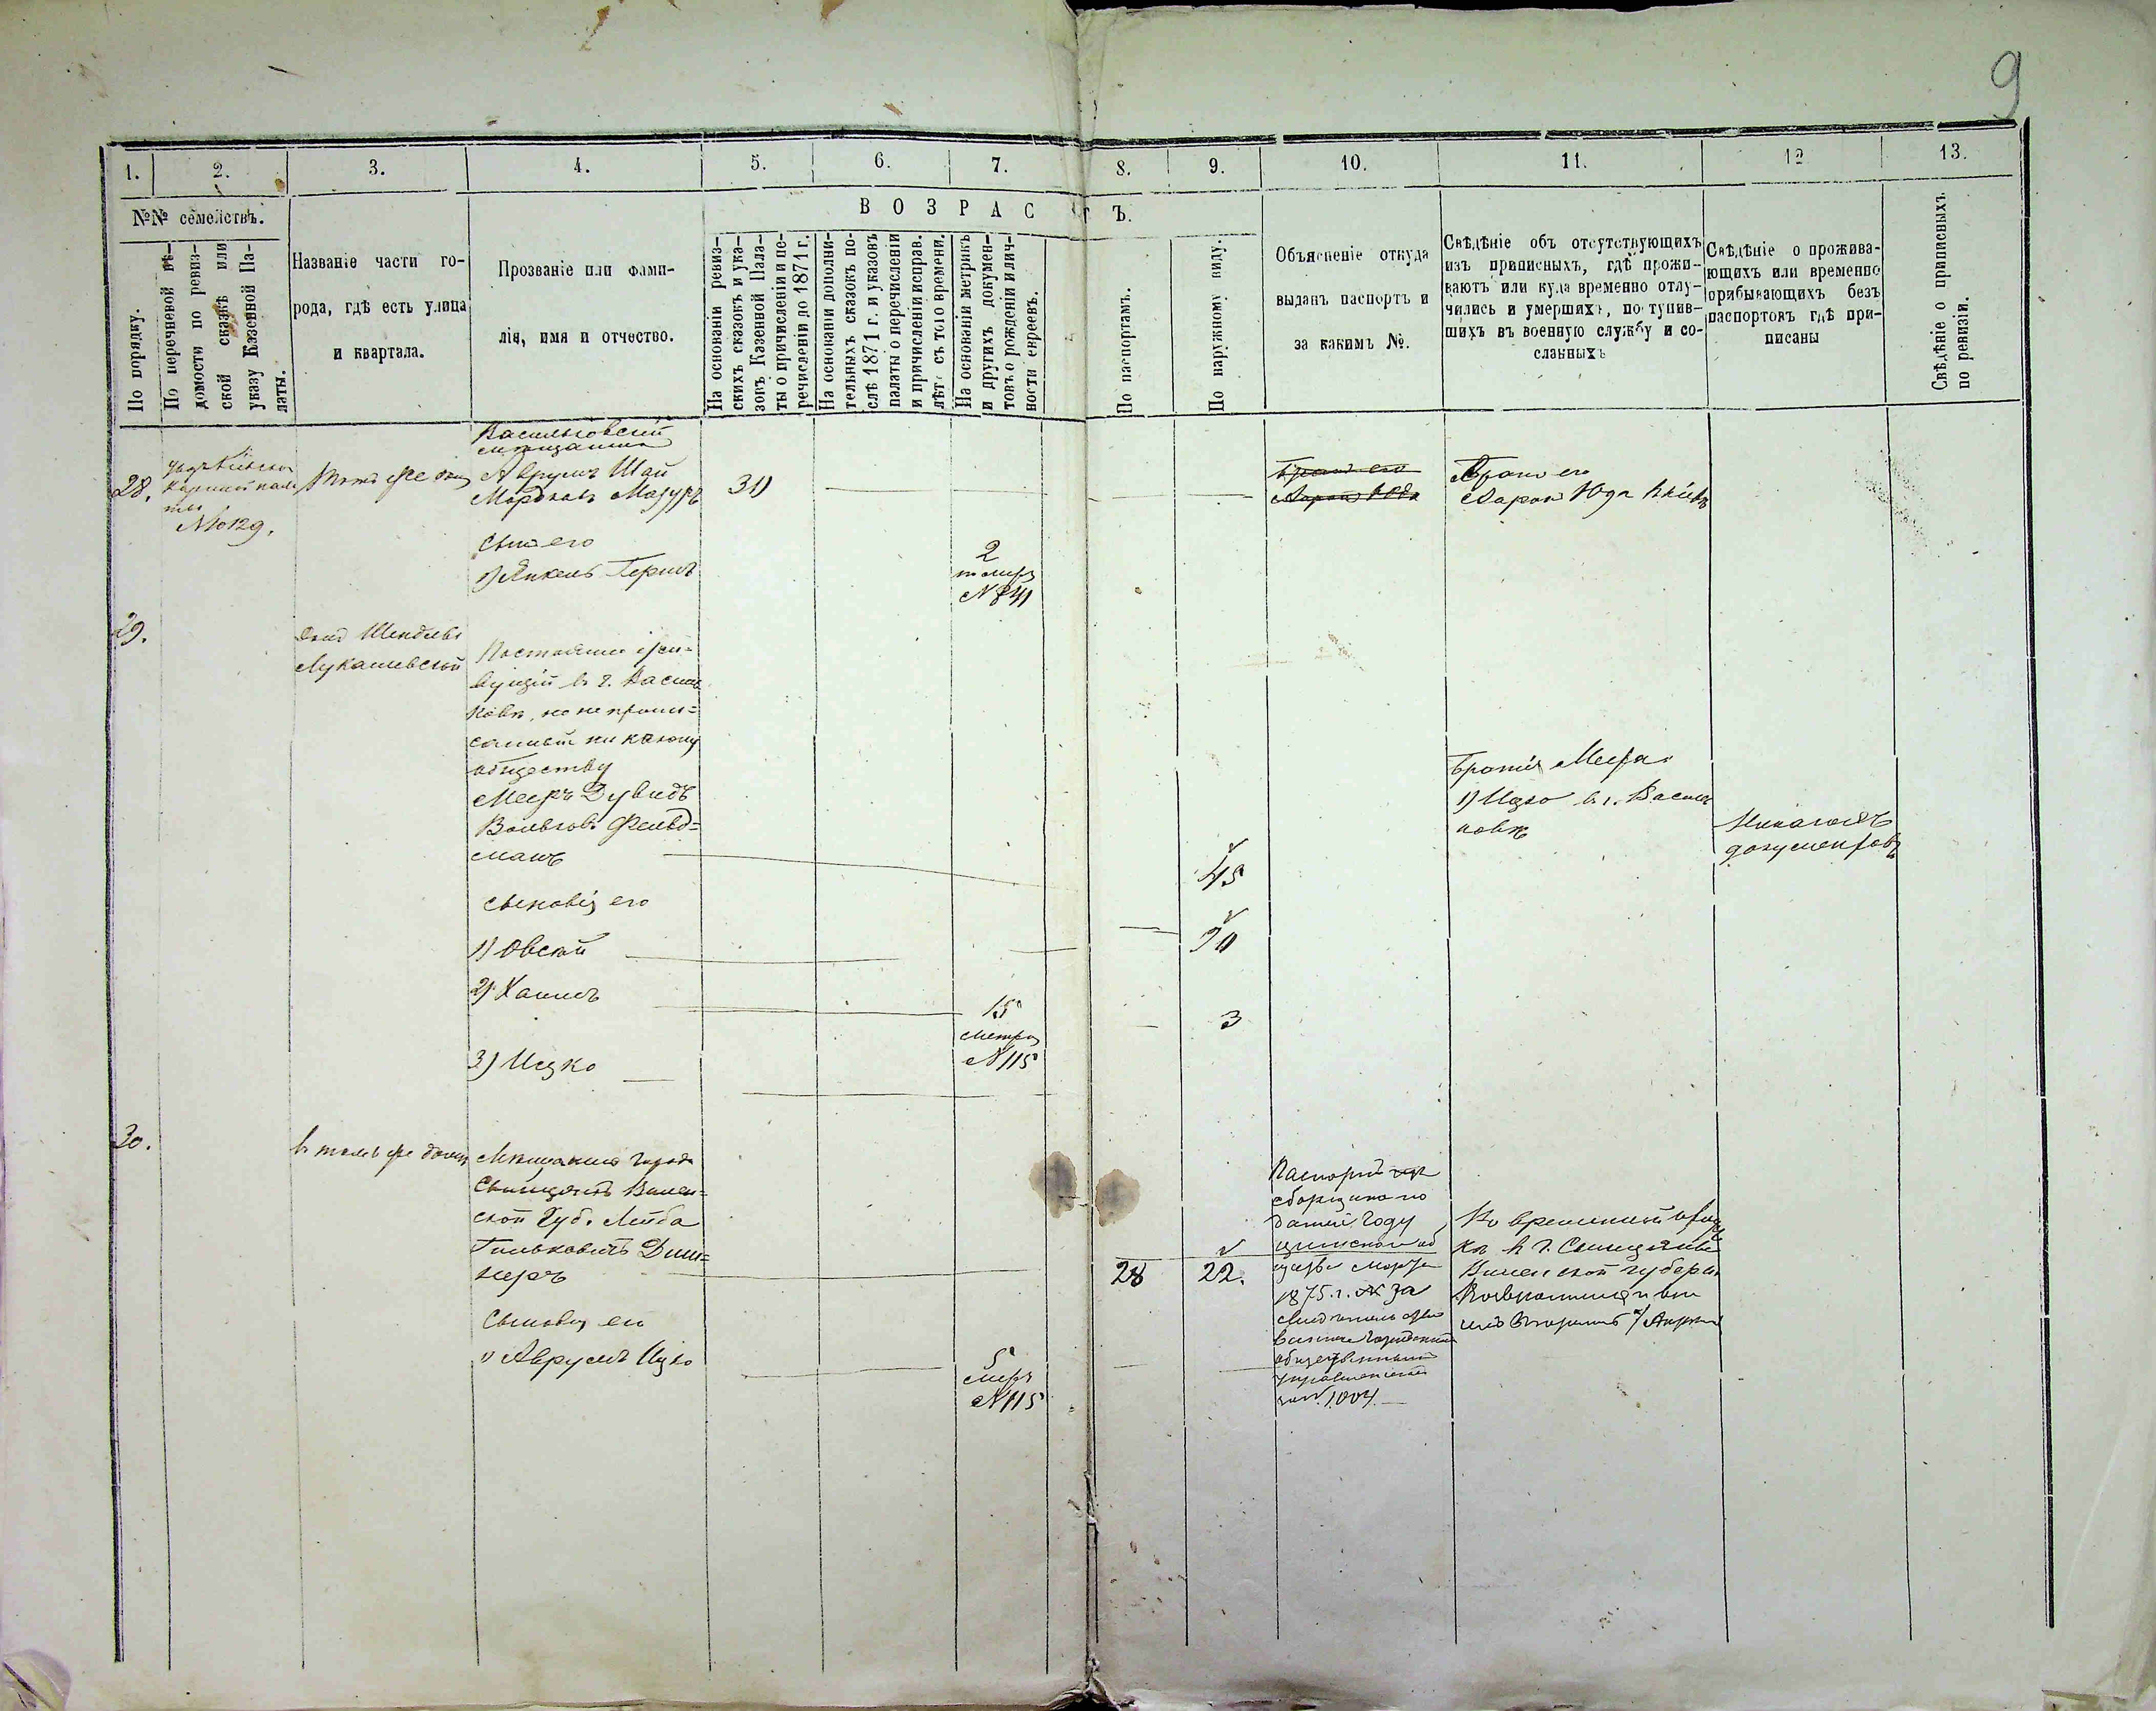 9
1. 2. 3. 4. 5. 6. 7. 8. 9. 10. 11. 12 13.
№№ семействъ.
По порядку.
По перечневой вѣ-
домости по ревиз-
ской сказкѣ или
указу Казенной Па-
латы.
Названіе части го-
рода, гдѣ есть улица
и квартала.
Прозваніе или фами-
лія, имя и отчество.
ВОЗРАСТЪ.
На основаніи ревиз-
скихъ сказокъ и ука-
зовъ Казенной Пала-
ты о причисленіи и пе-
речисленіи до 1871 г.
На основаніи дополни-
тельныхъ сказокъ по-
слѣ 1871 г. и указовъ
палаты о перечисленіи
и причисленіи исправ.
лѣтъ съ того времени.
На основаніи метрикъ
и другихъ докумен-
товъ о рожденіи и лич-
ности евреевъ.
По паспортамъ.
По наружному виду.
Объясненіе откуда
выданъ паспортъ и
за какимъ №.
Свѣдѣніе объ отсутствующихъ
изъ приписныхъ, гдѣ прожи-
ваютъ или куда временно отлу-
чились и умершихъ, поступив-
шихъ въ военную службу и со-
сланныхъ
Свѣдѣніе о прожива-
ющихъ или временно
прибывающихъ безъ
паспортовъ гдѣ при-
писаны
Свѣдѣніе о приписныхъ
по ревизіи.
28.
№ 129.
Васильковскій
мѣщанинъ
Аврумъ Шай
Мордковъ Мазуръ
31
Братъ его
Ааронъ Юда
Братъ его
Ааронъ Юда Кіевъ
сынъ его
1) Янкель Гершъ
2
№ 841
29.
домъ Шендлы
Лукашевской
Постоянно жи-
вущій в г. Василь
ковѣ, но не припи-
санный ни какому
обществу
Мееръ Дувидъ
Вольковъ Фельд-
манъ
45
Братья Меера
1) Ицко в г. Василь
ковѣ
Никакихъ
документовъ
сыновья его
1) Овсей
20
2) Хаимъ
15
метри
№ 115
3
3) Ицко
30.
в томъ же домѣ
Мѣщанинъ города
Свенцянъ Вилен-
ской Губ. Лейба
Гильковичъ
28
22.
Паспортъ
сборщика по
датей
1875. г. за
№ 1004.
Во временной
Виленской губерн
Сыновья его
1) Аврумъ Ицко
5
метр
№ 115